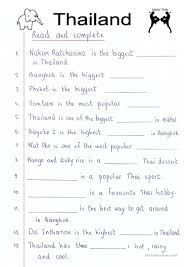 MUAY THAI
Thailand
Read and complete
1 Nakon Ratchasima is the biggest
in Thailand.
2 Bangkok is the biggest
3 Phuket is the biggest
4 Somtam is the most popular
5 is one of the dirtiest in ASEAN
6 Bayoke 2 is the highest in Bangkok.
7 Wat Pho is one of the most popular
8 Mango and sticky rice is a Thai dessert.
9 is a popular Thai sport.
10 is a favourite Thai hobby.
11 is the best way to get around
in Bangkok.
12 Doi Inthanon is the highest in Thailand
13 Thailand has three : hot, rainy
and cool.